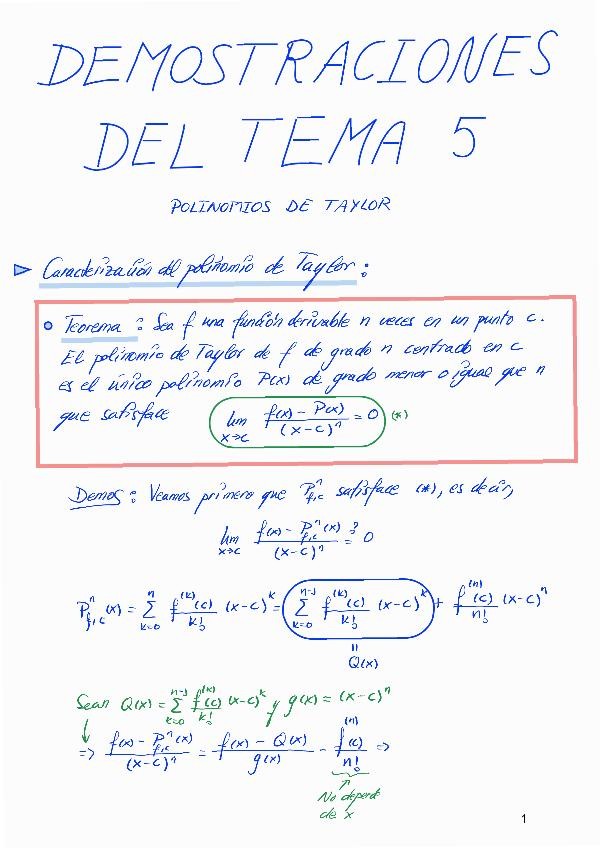 DEMOSTRACIONES
DEL TEMA 5
POLINOMIOS DE TAYLOR
▷ Caracterización del polinomio de Taylor :
• Teorema : Sea f una función derivable n veces en un punto c.
El polinomio de Taylor de f de grado n centrado en c
es el único polinomio P(x) de grado menor o igual que n
que satisface lim_{x→c} (f(x) - P(x))/((x-c)^n) = 0 (*)
Demos : Veamos primero que P^n_{f,c} satisface (*), es decir,
lim_{x→c} (f(x) - P^n_{f,c}(x))/((x-c)^n) ?= 0
P^n_{f,c}(x) = Σ_{k=0}^{n} f^{(k)}(c)/k! (x-c)^k = Σ_{k=0}^{n-1} f^{(k)}(c)/k! (x-c)^k + f^{(n)}(c)/n! (x-c)^n
"
Q(x)
Sean Q(x) = Σ_{k=0}^{n-1} f^{(k)}(c)/k! (x-c)^k y g(x) = (x-c)^n
=> (f(x) - P^n_{f,c}(x))/((x-c)^n) = (f(x) - Q(x))/g(x) - f^{(n)}(c)/n! =>
No depende
de x
1